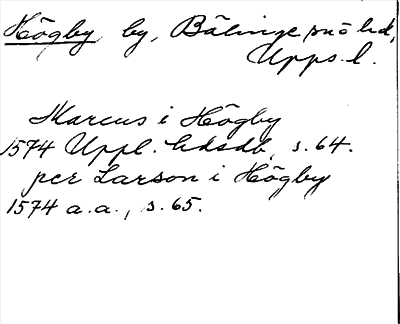 Högby by, Bälinge sn o hd,
Upps. l.
Marcus i Högby
1574 Uppl. hdsdb, s. 64.
per Larson i Högby
1574 a.a., s. 65.